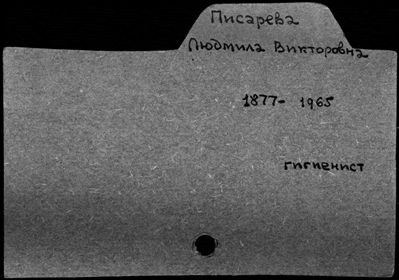 Писарева
Людмила Викторовна
1877- 1965
гигиенист